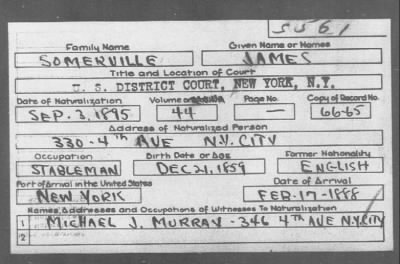 5561
Family Name Given Name or Names
SOMERVILLE JAMES
Title and Location of Court
U. S. DISTRICT COURT, NEW YORK, N.Y.
Date of Naturalization Volume or Page No. Copy of Record No.
SEP. 3. 1895 44 — 66-65
Address of Naturalized Person
330 - 4TH AVE N.Y. CITY
Occupation Birth Date or Age Former Nationality
STABLEMAN DEC 21, 1859 ENGLISH
Port of Arrival in the United States Date of Arrival
NEW YORK FEB-17-1888
Names, Addresses and Occupations of Witnesses To Naturalization
1 MICHAEL J. MURRAY - 346 4TH AVE N.Y. CITY
2